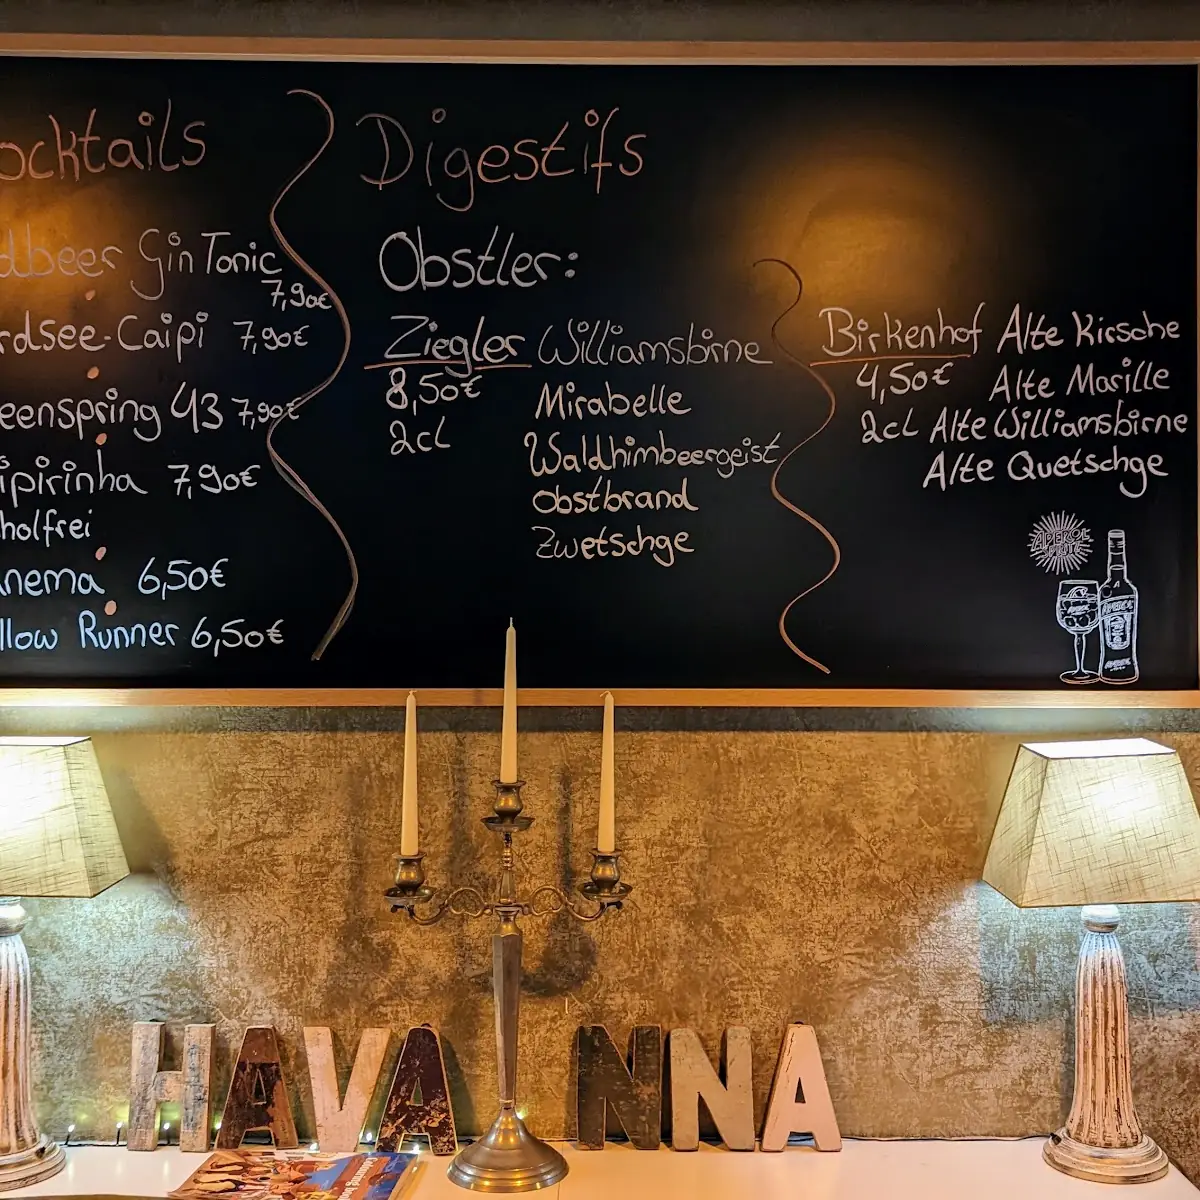 ocktails
dbeer Gin Tonic
7,90€
rdsee-Caipi 7,90€
eenspring 43 7,90€
ipirinha 7,90€
holfrei
nema 6,50€
llow Runner 6,50€
Digestifs
Obstler:
Ziegler Williamsbirne
8,50€ Mirabelle
2cl Waldhimbeergeist
Obstbrand
Zwetschge
Birkenhof Alte Kirsche
4,50€ Alte Marille
2cl Alte Williamsbirne
Alte Quetschge
APEROL
SPRITZ
APEROL
APEROL
HAVANNA